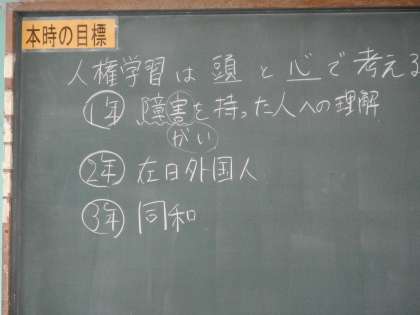 本時の目標
人権学習は頭と心で考える
1年 障害を持った人への理解
がい
2年 在日外国人
3年 同和